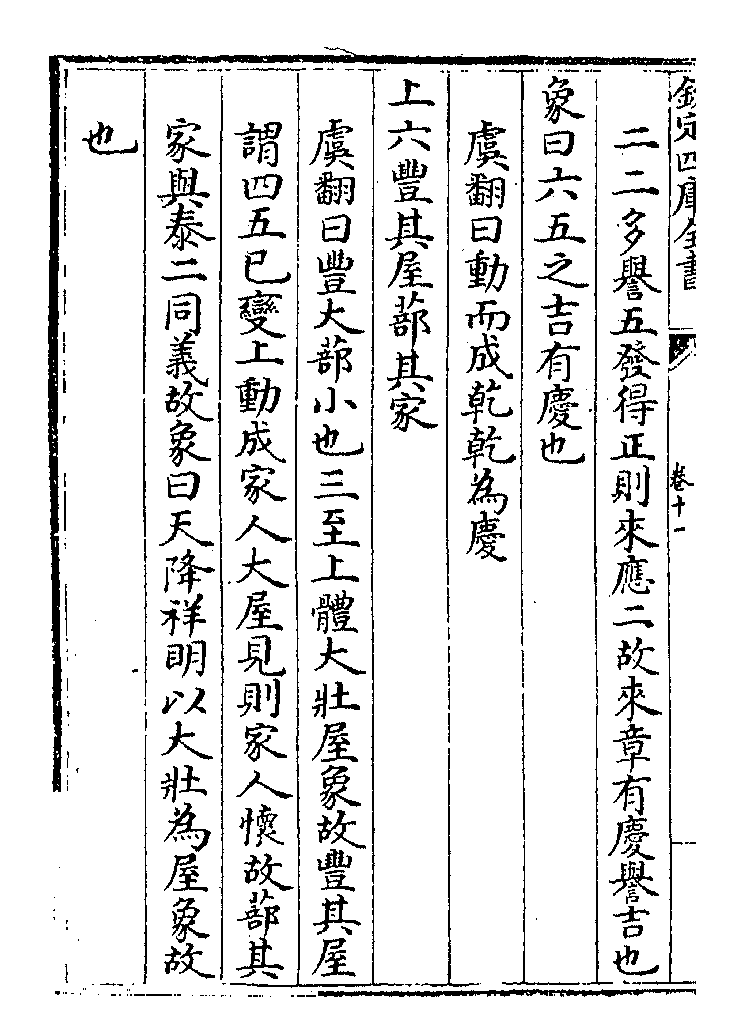 欽定四庫全書
卷十一
二二多譽五發得正則來應二故來章有慶譽吉也
象曰六五之吉有慶也
虞翻曰動而成乾乾為慶
上六豐其屋蔀其家
虞翻曰豐大蔀小也三至上體大壯屋象故豐其屋
謂四五已變上動成家人大屋見則家人懷故蔀其
家與泰二同義故象曰天降祥明以大壯為屋象故
也